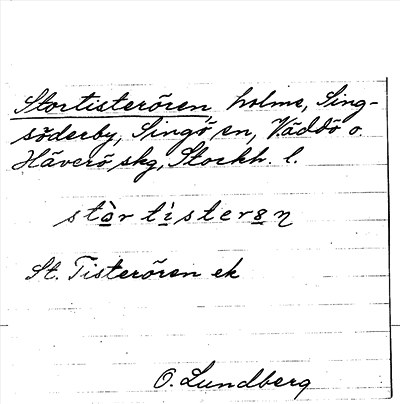 Stortisterören, holme, Sing-
söderby, Singö sn, Väddö o.
Häverö skg, Stockh. l.
stòr tìsterøn
St. Tisterören ek
O. Lundberg